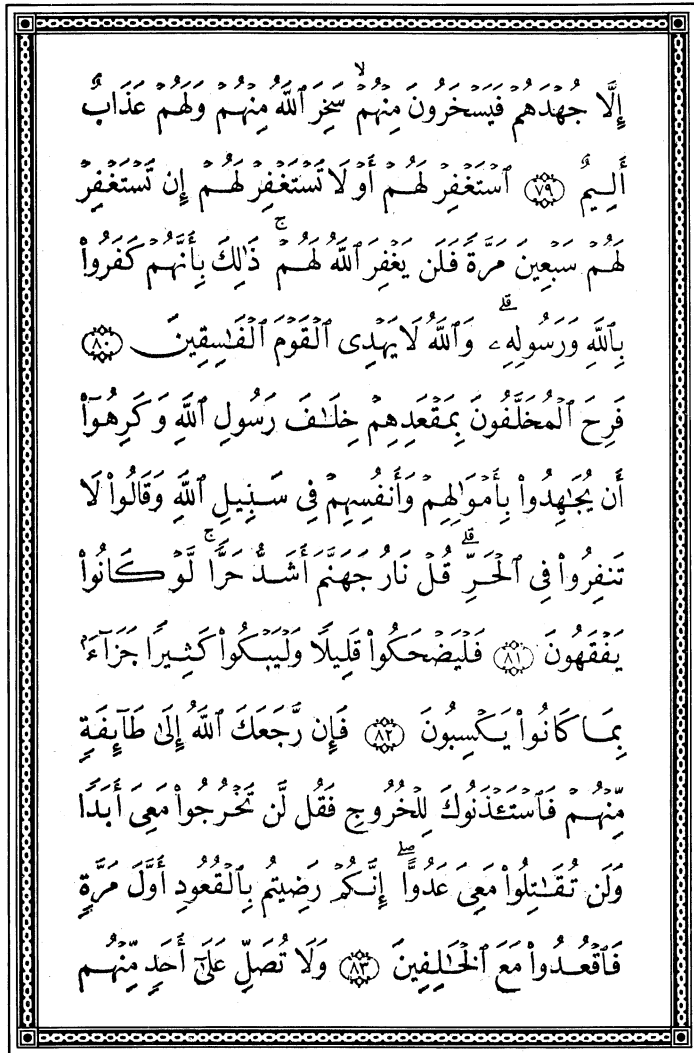 إِلَّا جُهْدَهُمْ فَيَسْخَرُونَ مِنْهُمْ ۙ سَخِرَ ٱللَّهُ مِنْهُمْ وَلَهُمْ عَذَابٌ
أَلِيمٌ ٧٩ ٱسْتَغْفِرْ لَهُمْ أَوْ لَا تَسْتَغْفِرْ لَهُمْ إِن تَسْتَغْفِرْ
لَهُمْ سَبْعِينَ مَرَّةً فَلَن يَغْفِرَ ٱللَّهُ لَهُمْ ۚ ذَٰلِكَ بِأَنَّهُمْ كَفَرُوا۟
بِٱللَّهِ وَرَسُولِهِۦ ۗ وَٱللَّهُ لَا يَهْدِى ٱلْقَوْمَ ٱلْفَٰسِقِينَ ٨٠
فَرِحَ ٱلْمُخَلَّفُونَ بِمَقْعَدِهِمْ خِلَٰفَ رَسُولِ ٱللَّهِ وَكَرِهُوٓا۟
أَن يُجَٰهِدُوا۟ بِأَمْوَٰلِهِمْ وَأَنفُسِهِمْ فِى سَبِيلِ ٱللَّهِ وَقَالُوا۟ لَا
تَنفِرُوا۟ فِى ٱلْحَرِّ ۗ قُلْ نَارُ جَهَنَّمَ أَشَدُّ حَرًّا ۚ لَّوْ كَانُوا۟
يَفْقَهُونَ ٨١ فَلْيَضْحَكُوا۟ قَلِيلًا وَلْيَبْكُوا۟ كَثِيرًا جَزَآءًۢ
بِمَا كَانُوا۟ يَكْسِبُونَ ٨٢ فَإِن رَّجَعَكَ ٱللَّهُ إِلَىٰ طَآئِفَةٍ
مِّنْهُمْ فَٱسْتَـْٔذَنُوكَ لِلْخُرُوجِ فَقُل لَّن تَخْرُجُوا۟ مَعِىَ أَبَدًا
وَلَن تُقَٰتِلُوا۟ مَعِىَ عَدُوًّا ۖ إِنَّكُمْ رَضِيتُم بِٱلْقُعُودِ أَوَّلَ مَرَّةٍ
فَٱقْعُدُوا۟ مَعَ ٱلْخَٰلِفِينَ ٨٣ وَلَا تُصَلِّ عَلَىٰٓ أَحَدٍ مِّنْهُم